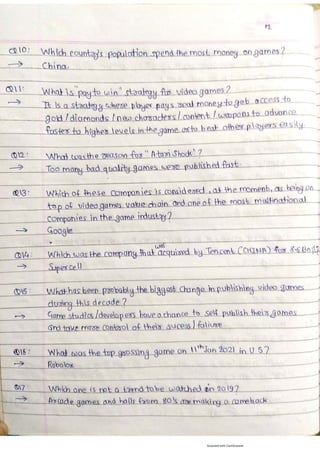 P2
Q10: Which country's population spend the most money on games?
→ China.
Q11: What is "pay to win" strategy for video games?
→ It is a strategy where player pays real money to get access to
gold / diamonds / new characters / content / weapons to advance
faster to higher levels in the game or to beat other players easily.
Q12: What was the reason for "Atari Shock"?
→ Too many bad quality games were published fast.
Q13: Which of these companies is considered, at the moment, as being on
top of video games value chain and one of the most multinational
companies in the game industry?
→ Google
Q14: Which was the company that was acquired by Tencent (CHINA) for
→ Supercell
Q15: What has been probably the biggest change in publishing video games
during this decade?
→ Game studios/developers have a chance to self publish their games
and take more control of their sucess / failure.
Q16: What was the top grossing game on 11th Jan 2021 in U S?
→ Robolox
Q17: Which one is not a trend to be watched in 2019?
→ Arcade games and halls from 80's are making a comeback.
Scanned with CamScanner